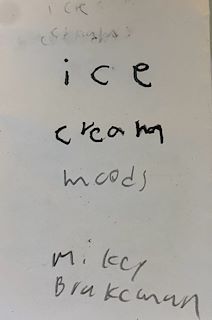 ice
ice
cream
moods
Mikey
Brakeman